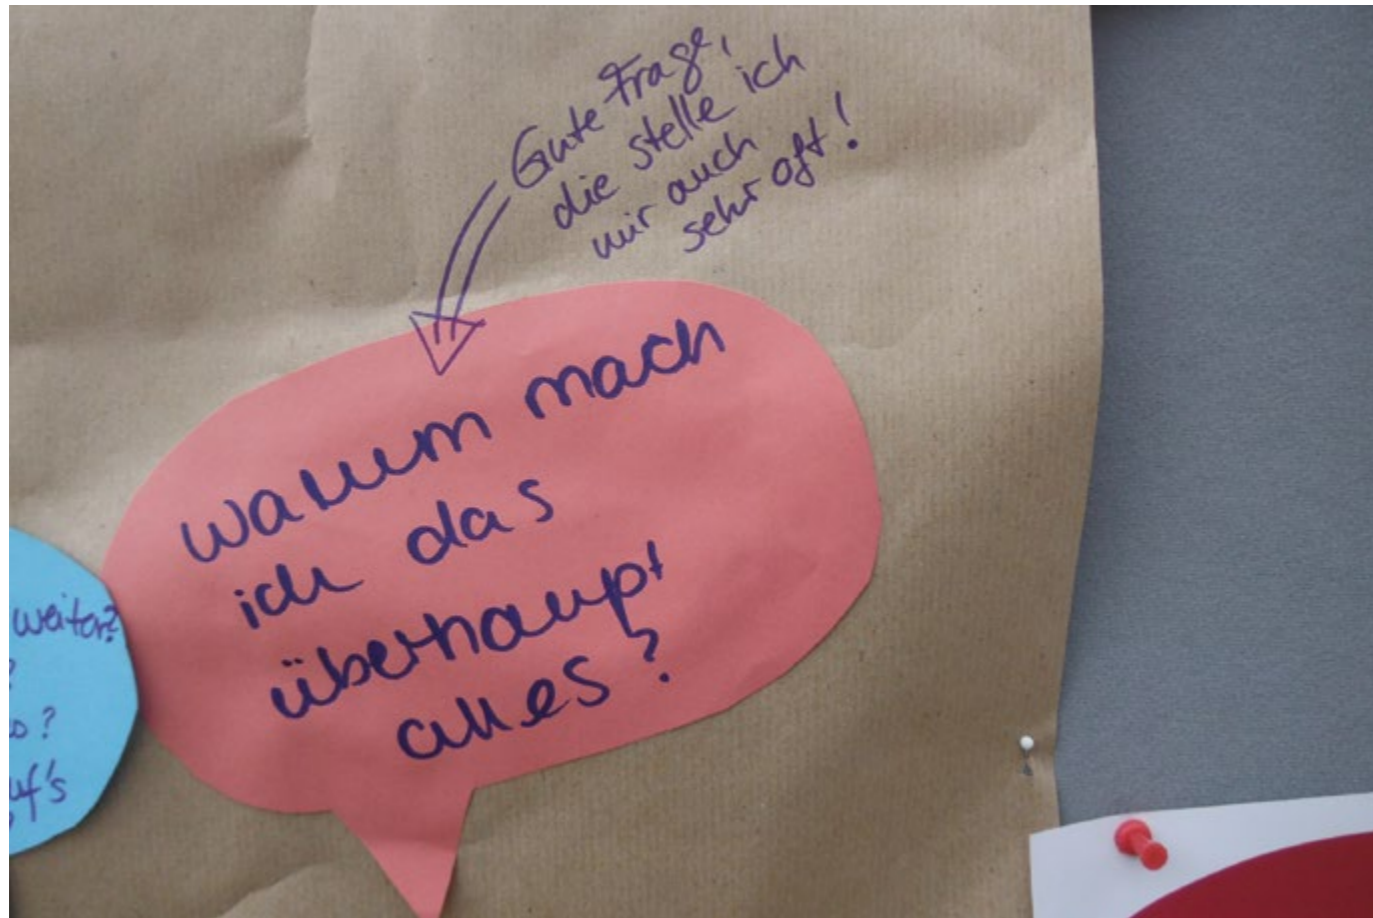 Gute Frage,
die stelle ich
mir auch
sehr oft!
warum mach
ich das
überhaupt
alles?
weiter?
?
?